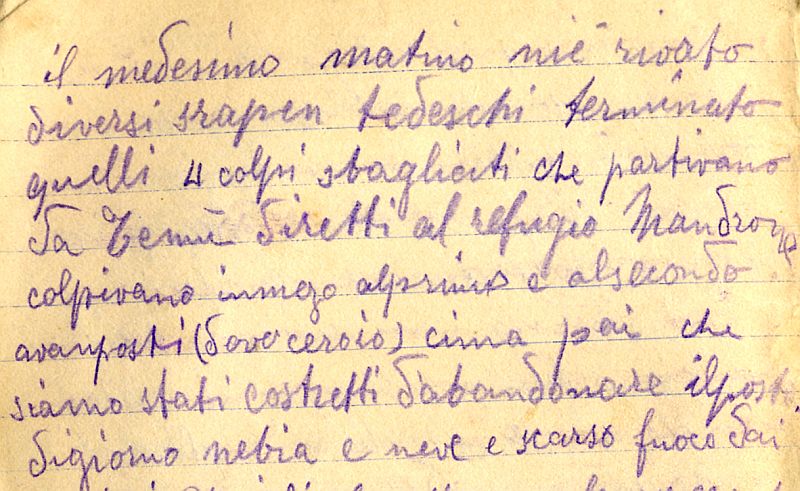 il medesimo matino nié rivato
diversi srapen tedeschi terminato
quelli 4 colpi sbagliati che partivano
da Temù diretti al refugio Mandrone
colpivano inmezo alprimo e alsecondo
avanposti (dove'ceroio) cima poi che
siamo stati costretti d'abandonare ilposto
digiorno nebia e neve e scarso fuoco dai